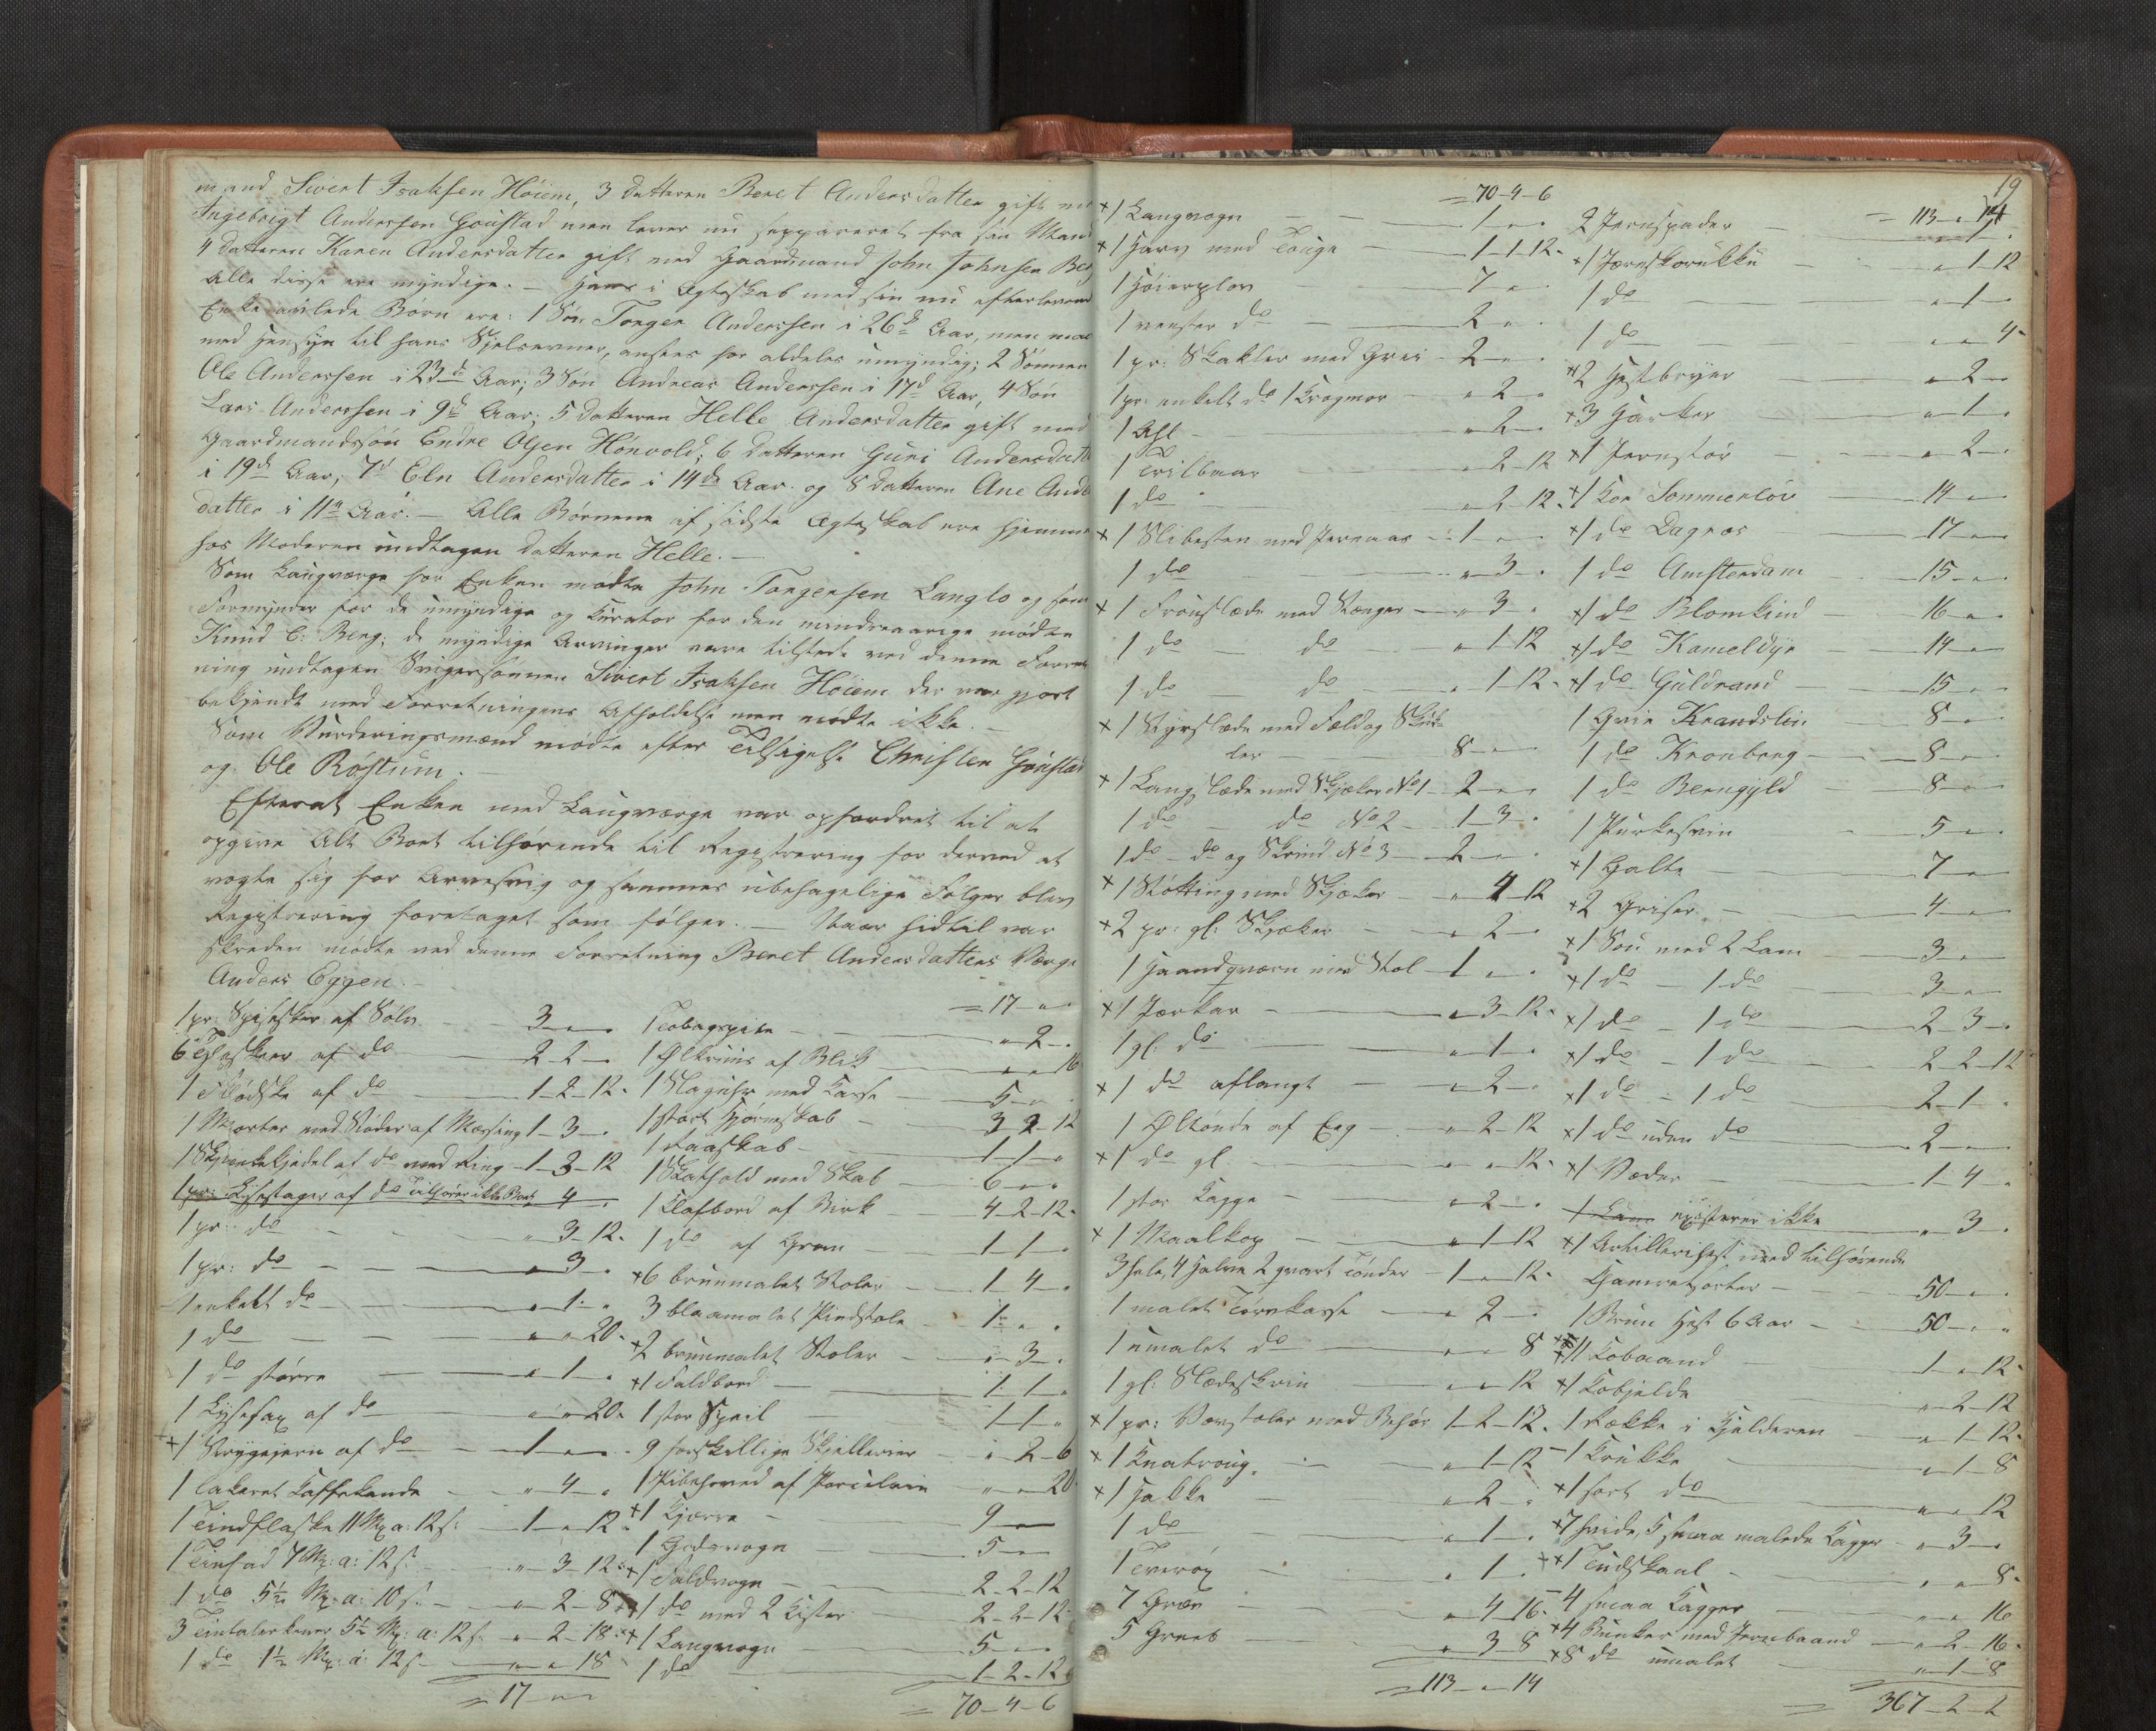 mand Sivert Isaksen Höiem, 3 datteren Beret Andersdatter gift me
Ingebrigt Anderssen Goustad men lever nu seppareret fra sin Man
4 datteren Karen Andersdatter gift med Gaardmand John Johnsen Berg
Alle disse ere myndige. – Hans i Ægteskab med sin nu efterlevend
Enke avlede Børn ere: 1 Søn Torger Anderssen i 26de Aar, men maa
med Hensyn til hans Sjelsevner, ansees for aldeles umyndig; 2 Sønnen
Ole Anderssen i 23de Aar; 3 Søn Andreas Anderssen i 17de Aar, 4 Søn
Lars Anderssen i 9de Aar; 5 datteren Helle Andersdatter gift med
Gaardmandssøn Endre Olsen Hönvold; 6 datteren Guri Andersdatt
i 19de Aar, 7de Eln Andersdatter i 14de Aar og 8 datteren Ane Ande
datter i 11te Aar. – Alle Børnene af sidste Ægteskab ere hjemme
hos Moderen undtagen datteren Helle. –
Som Laugværge for Enken mødte John Torgersen Langlo og som
Formynder for de umyndige og Kurator for den mindreaarige mødte
Knud C: Berg; de myndige Arvinger vare tilstede ved denne Forret
ning undtagen Svigersønnen Sivert Isaksen Höiem der var gjort
bekjendt med Forretningens Afholdelse men mødte ikke. –
Som Vurderingsmænd mødte efter Tilsigelse Christen Goustad
og Ole Röstum. –
Efterat Enken med Laugværge var opfordret til at
opgive Alt Boet tilhørende til Registrering for derved at
vogte sig for Arvesvig og sammes ubehagelige Følger blev
Registrering foretaget som følger. – Naar hidtil var
skreden mødte ved denne Forretning Beret Andersdatters Værge
Anders Eggen. –
1 pr: Spiseskeer af Sølv 3 – " – "
6 Theskeer af do 2 – 2 – "
1 Flødske af do 1 – 2 – 12
1 Morter med Støder af Messing 1 – 3 – "
1 Skjenkekjedel af do med Ring 1 – 3 – 12
1 pr: Lysestager af do tilhører ikke Boet 4 – "
1 pr: do " – 3 – 12
1 pr: do " – 3 – "
1 enkelt do " – 1 – "
1 do " – " – 20
1 do større " – 1 – "
1 Lysesax af do " – " – 20
+ 1 Strygejern af do 1 – " – "
1 lakeret Kaffekande " – 4 – "
1 Tindflaske 11 Mk a: 12 s: 1 – " – 12
1 Tinfad 7 Mk: a: 12 s: " – 3 – 12
1 do 5½ Mk: a: 10 s: " – 2 – 8
3 Tintalerkener 5½ Mk: a: 12 s: " – 2 – 18
1 do 1½ Mk: a: 12 s: " – " – 18
= 17 – " – "
= 17 – " – "
1 Tobagspibe " – 2 – "
1 Ølkruus af Blik " – " – 16
1 Slaguhr med Kasse 5 – " – "
1 stort Hjørneskab 3 – 2 – 12
1 Raaskab 1 – 1 – "
1 Skathold med Skab 6 – " – "
1 Klafbord af Birk 4 – 2 – 12
1 do af Gran 1 – 1 – "
+ 6 bruunmalet Stoler 1 – 4 – "
3 blaamalet Pindstole 1 – " – "
+ 2 bruunmalet Stoler " – 3 – "
+ 1 Foldbord 1 – 1 – "
1 stor Speil 1 – 1 – "
9 forskillige Skjellerier " – 2 – 6
1 Pibehoved af Porcelain " – " – 20
+ 1 Kjærre 9 – " – "
1 Gedevogn 5 – " – "
+ 1 Faldvogn 2 – 2 – 12
+ 1 do med 2 Kister 2 – 2 – 12
+ 1 Langvogn 5 – " – "
1 do 1 – 2 – 12
= 70 – 4 – 6
19
= 70 – 4 – 6
+ 1 Langvogn 1 – " – "
+ 1 Harv med Touge 1 – 1 – 12
1 Høireplov 7 – " – "
1 venster do 2 – " – "
1 pr: Skakler med Greie 2 – " – "
1 pr: enkelt do 1 Krogmor " – 2 – "
1 Ahl " – 2 – "
1 Trilbaar " – 2 – 12
1 do " – 2 – 12
+ 1 Slibesten med Jernaas 1 – " – "
1 do " – 3 – "
+ 1 Fronslæde med Stænger " – 3 – "
1 do – do " – 1 – 12
1 do – do " – 1 – 12
+ 1 Kyrslæde med Fæld og Skak-
ler 8 – " – "
+ 1 Langslæde med Skjæker No 1 2 – " – "
1 do – do No 2 1 – 3 – "
1 do – do og Skrind No 3 2 – " – "
+ 1 Støtting med Skjæker " – 4 – 12
+ 2 pr: gl: Skjæker " – 2 – "
1 Haandqværn med Stol 1 – " – "
+ 1 Jærkar " – 3 – 12
1 gl: do " – 1 – "
+ 1 do aflangt " – 2 – "
1 Øltønde af Eeg " – 2 – 12
+ 1 do gl: " – " – 12
1 stor Kagge " – 2 – "
+ 1 Maalkop " – 1 – 12
3 hele, 4 halve 2 qvart Tønder 1 – " – 12
1 malet Tørnkasse " – 2 – "
1 umalet do " – " – 8
1 gl: Slædeskrin " – " – 12
+ 1 pr: Vævstoler med Behør 1 – 2 – 12
+ 1 Knatroug " – 1 – 12
+ 1 Hakke " – 2 – "
1 do " – 1 – "
1 Tverøx " – 1 – "
7 Græv " – 4 – 16
5 Greeb " – 3 – 8
= 113 – " – 14
= 113 – " – 14
2 Jernspader " – 1 – "
+ 1 Jernskorukku " – 1 – 12
1 do " – 1 – "
1 do " – " – 4
+ 2 Hestbryer " – 2 – "
+ 3 Harker " – 1 – "
+ 1 Jernstør " – 2 – "
+ 1 Koe Sommerløv 14 – " – "
+ 1 do Dagros 17 – " – "
1 do Amsterdam 15 – " – "
+ 1 do Blomkind 16 – " – "
+ 1 do Kameldyr 14 – " – "
+ 1 do Guldrand 15 – " – "
1 Qvie Krandslin 8 – " – "
1 do Kronborg 8 – " – "
1 do Berngyld 8 – " – "
1 Purkesvin 5 – " – "
+ 1 Galte 7 – " – "
+ 2 Griser 4 – " – "
+ 1 Sou med 2 Lam 3 – " – "
+ 1 do – 1 do 3 – " – "
+ 1 do – 1 do 2 – 3 – "
+ 1 do – 1 do 2 – 2 – 12
+ 1 do – 1 do 2 – 1 – "
+ 1 do uden do 2 – " – "
+ 1 Væder 1 – 4 – "
1 Lam existerer ikke " – 3 – "
+ 1 Artillerihest med tilhørende
50 – " – "
1 Bruun Hest 6 Aar 50 – " – "
+ 11 Kobaand 1 – " – 12
+ 1 Kobjelde " – 2 – 12
1 Række i Kjelderen " – 1 – 12
1 Krukke " – 1 – 8
+ 1 sort do " – " – 12
+ 7 hvide, 5 smaa malede Kagger " – 3 – "
+ 1 Tudskaal " – " – 8
4 smaa Kagger " – " – 16
+ 4 Bunker med Jernbaand " – 2 – 16
+ 8 do umalet " – 1 – 8
= 367 – 2 – 2